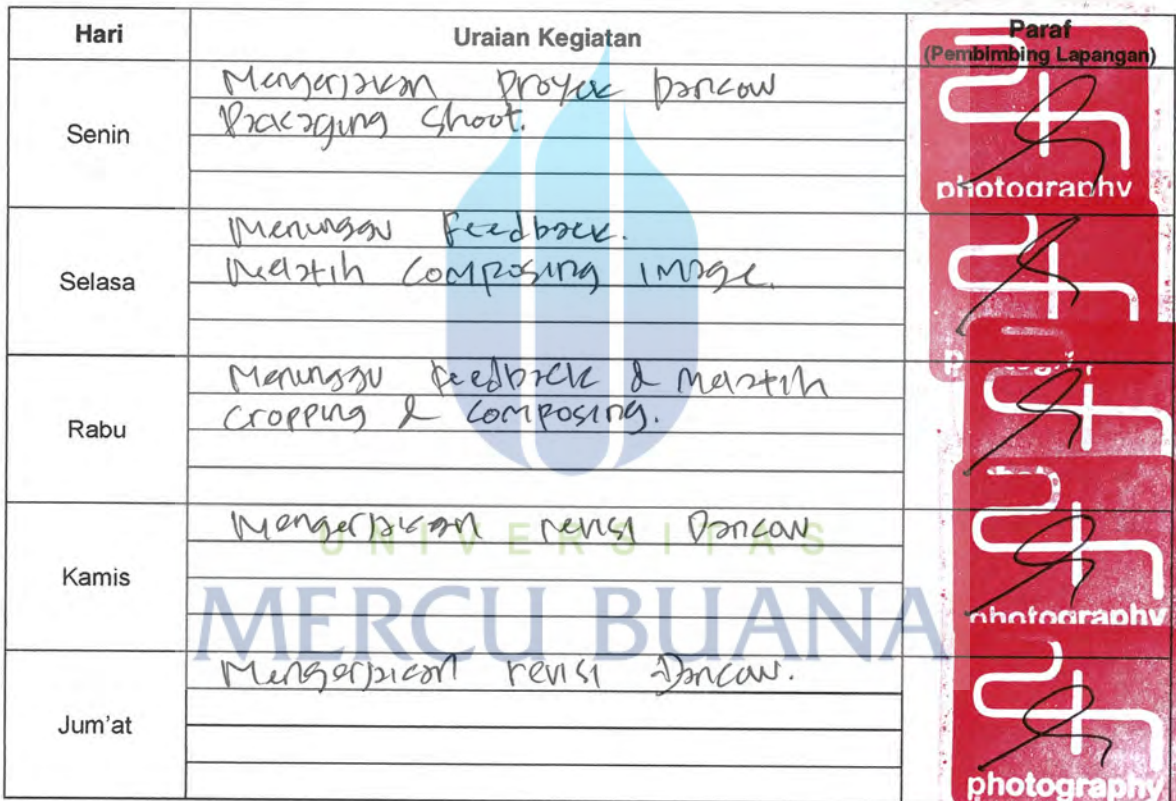 Hari Uraian Kegiatan Paraf
(Pembimbing Lapangan)
Senin
Mengerjakan Proyek Dancow
Packaging Shoot.
photography
Selasa
Menunggu Feedback.
Melatih composing image.
Rabu
Menunggu feedback & melatih
cropping & composing.
Kamis
Mengerjakan revisi Dancow
photography
UNIVERSITAS
MERCU BUANA
Jum'at
Mengerjakan revisi Dancow.
photography